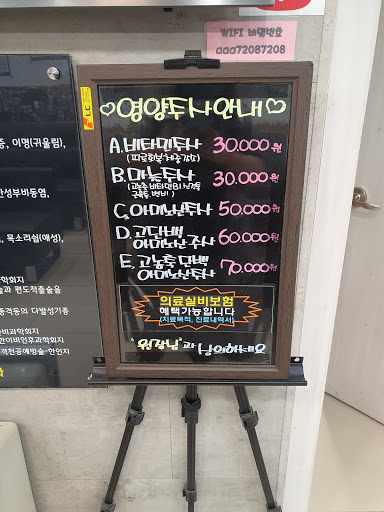 WIFI 비밀번호
aaa72087208
♡영양주사안내♡
A. 비타민주사 30.000원
(피로회복·체중감소)
B. 마늘주사 30.000원
C. 아미노산주사 50.000원
D. 고단백
아미노산 주사 60.000원
E. 고농축 단백
아미노산주사 70.000원
의료실비보험
혜택가능합니다
(치료목적, 진료내역서)
"원장님"과 상의하세요
증, 이명(귀울림),
만성부비동염,
, 목소리쉼(애성),
과학회지
술과 편도적출술을
종격동의 다발성기종
비과학회지
한이비인후과학회지
격천공예방술-한인지